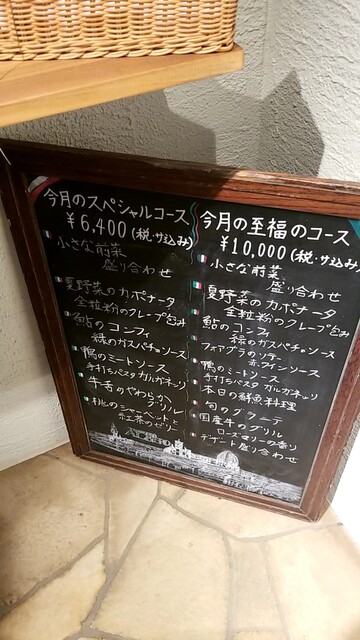 今月のスペシャルコース
¥6,400(税・サ込み)
小さな前菜
盛り合わせ
夏野菜のカポナータ
全粒粉のクレープ包み
鮎のコンフィ
緑のガスパチョソース
鴨のミートソース
手打ちパスタ ガルガネッリ
牛舌のやわらか
グリル
桃のシャーベットと
紅茶のゼリー
今月の至福のコース
¥10,000(税・サ込み)
小さな前菜
盛り合わせ
夏野菜のカポナータ
全粒粉のクレープ包み
鮎のコンフィ
緑のガスパチョソース
フォアグラのソテー
赤ワインソース
鴨のミートソース
手打ちパスタ ガルガネッリ
本日の鮮魚料理
旬のグラニテ
国産牛のグリル
ローズマリーの香り
デザート盛り合わせ